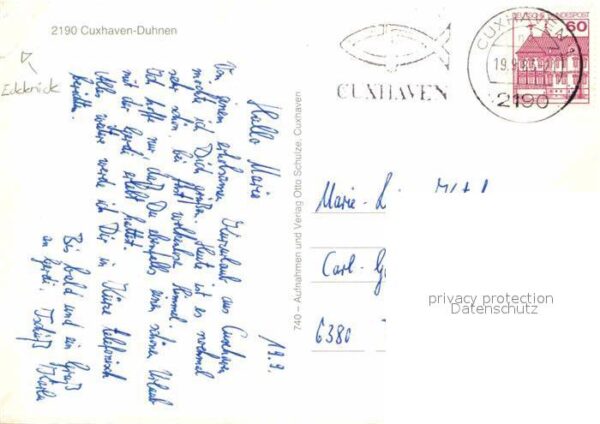 2190 Cuxhaven-Duhnen
Eckknick
CUXHAVEN
CUXHAVEN 1
19.9.
2190
DEUTSCHE BUNDESPOST
60
19.9.
Hallo Maria
Von einem erholsamen Kurzurlaub aus Cuxhaven
möchte ich Dich grüßen. Heute ist es nochmal
sehr schön, bei fast wolkenlosem Himmel.
Ich hoffe nur, daß Du ebenfalls einen schönen Urlaub
mit der Gerdi erlebt hattest.
Alles weitere werde ich Dir in Kürze telefonisch
berichten.
Bis bald und ein Gruß
an Gerdi. Tschüß
740 – Aufnahmen und Verlag Otto Schulze, Cuxhaven
Marie-
Carl-
6380
privacy protection
Datenschutz